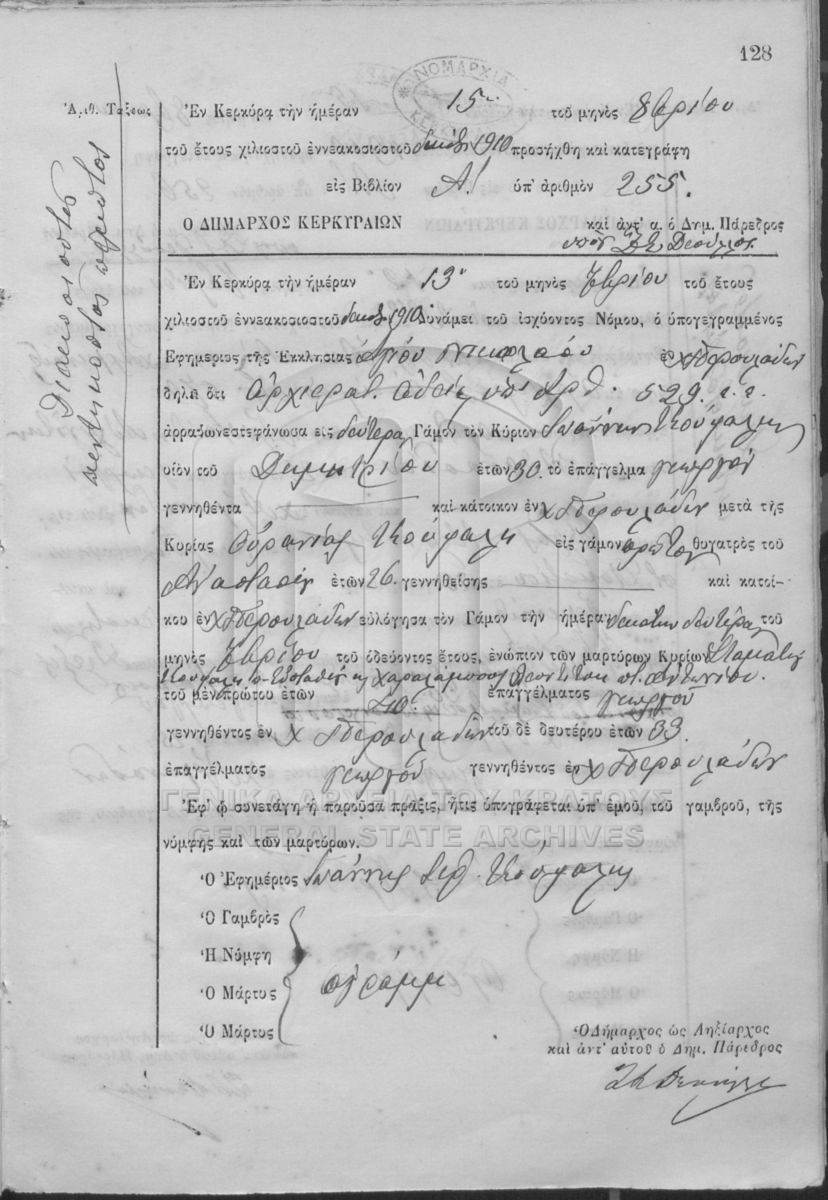 128
ΝΟΜΑΡΧΙΑ
ΚΕΡΚΥΡΑΣ
Ἀριθ. Τάξεως
Διακοσιοστὸς
πεντηκοστὸς πέμπτος
Ἐν Κερκύρᾳ τὴν ἡμέραν 15 τοῦ μηνὸς 8βρίου
τοῦ ἔτους χιλιοστοῦ ἐννεακοσιοστοῦ δεκάτου 1910 προσήχθη καὶ κατεγράφη
εἰς Βιβλίον Α! ὑπ' ἀριθμὸν 255.
Ο ΔΗΜΑΡΧΟΣ ΚΕΡΚΥΡΑΙΩΝ καὶ ἀντ' α. ὁ Δημ. Πάρεδρος
Ἐν Κερκύρᾳ τὴν ἡμέραν 13 τοῦ μηνὸς 7βρίου τοῦ ἔτους
χιλιοστοῦ ἐννεακοσιοστοῦ 1910 δυνάμει τοῦ ἰσχύοντος Νόμου, ὁ ὑπογεγραμμένος
Ἐφημέριος τῆς Ἐκκλησίας Ἁγίου Νικολάου ἐν χ Περουλάδων
δηλῶ ὅτι Ἀρχιερατ. ἀδείᾳ ὑπ' ἀρθ. 529. ἐ. ἔ.
ἀρραβωνεστεφάνωσα εἰς δεύτερον Γάμον τὸν Κύριον Ἰωάννην Κούφαλην
υἱὸν τοῦ Δημητρίου ἐτῶν 30. τὸ ἐπάγγελμα γεωργοῦ
γεννηθέντα καὶ κάτοικον ἐν χ Περουλάδων μετὰ τῆς
Κυρίας Οὐρανίας Κούφαλη εἰς γάμον πρῶτον θυγατρὸς τοῦ
Ἀναστασίου ἐτῶν 26. γεννηθείσης καὶ κατοί-
κου ἐν χ Περουλάδων εὐλόγησα τὸν Γάμον τὴν ἡμέραν δεκάτην δευτέρα τοῦ
μηνὸς 7βρίου τοῦ ὁδεύοντος ἔτους, ἐνώπιον τῶν μαρτύρων Κυρίων Σταμάτη
Κούφαλη π. Εὐσταθίου κ Χαραλάμπους π. Ἀντωνίου.
τοῦ μὲν πρώτου ἐτῶν ἐπαγγέλματος γεωργοῦ
γεννηθέντος ἐν χ Περουλάδων τοῦ δὲ δευτέρου ἐτῶν 33.
ἐπαγγέλματος γεωργοῦ γεννηθέντος ἐν χ Περουλάδων
ΓΕΝΙΚΑ ΑΡΧΕΙΑ ΤΟΥ ΚΡΑΤΟΥΣ
Ἐφ' ᾧ συνετάγη ἡ παροῦσα πρᾶξις, ἥτις ὑπογράφεται ὑπ' ἐμοῦ, τοῦ γαμβροῦ, τῆς
GENERAL STATE ARCHIVES
νύμφης καὶ τῶν μαρτύρων.
Ὁ Ἐφημέριος Ἰωάννης Κούφαλης
Ὁ Γαμβρὸς
Ἡ Νύμφη
Ὁ Μάρτυς ἀγράμμ
Ὁ Μάρτυς
Ὁ Δήμαρχος ὡς Ληξίαρχος
καὶ ἀντ' αὐτοῦ ὁ Δημ. Πάρεδρος